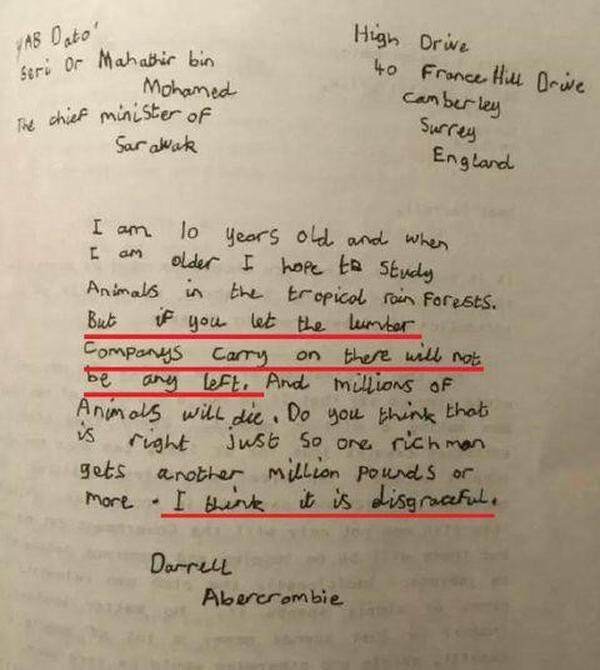 YAB Dato'
Seri Dr Mahathir bin
Mohamed
The chief minister of
Sarawak
High Drive
40 France Hill Drive
Camberley
Surrey
England
I am 10 years old and when
I am older I hope to study
Animals in the tropical rain forests.
But if you let the lumber
Companys carry on there will not
be any left. And millions of
Animals will die. Do you think that
is right just so one rich man
gets another million pounds or
more. I think it is disgraceful.
Darrell
Abercrombie